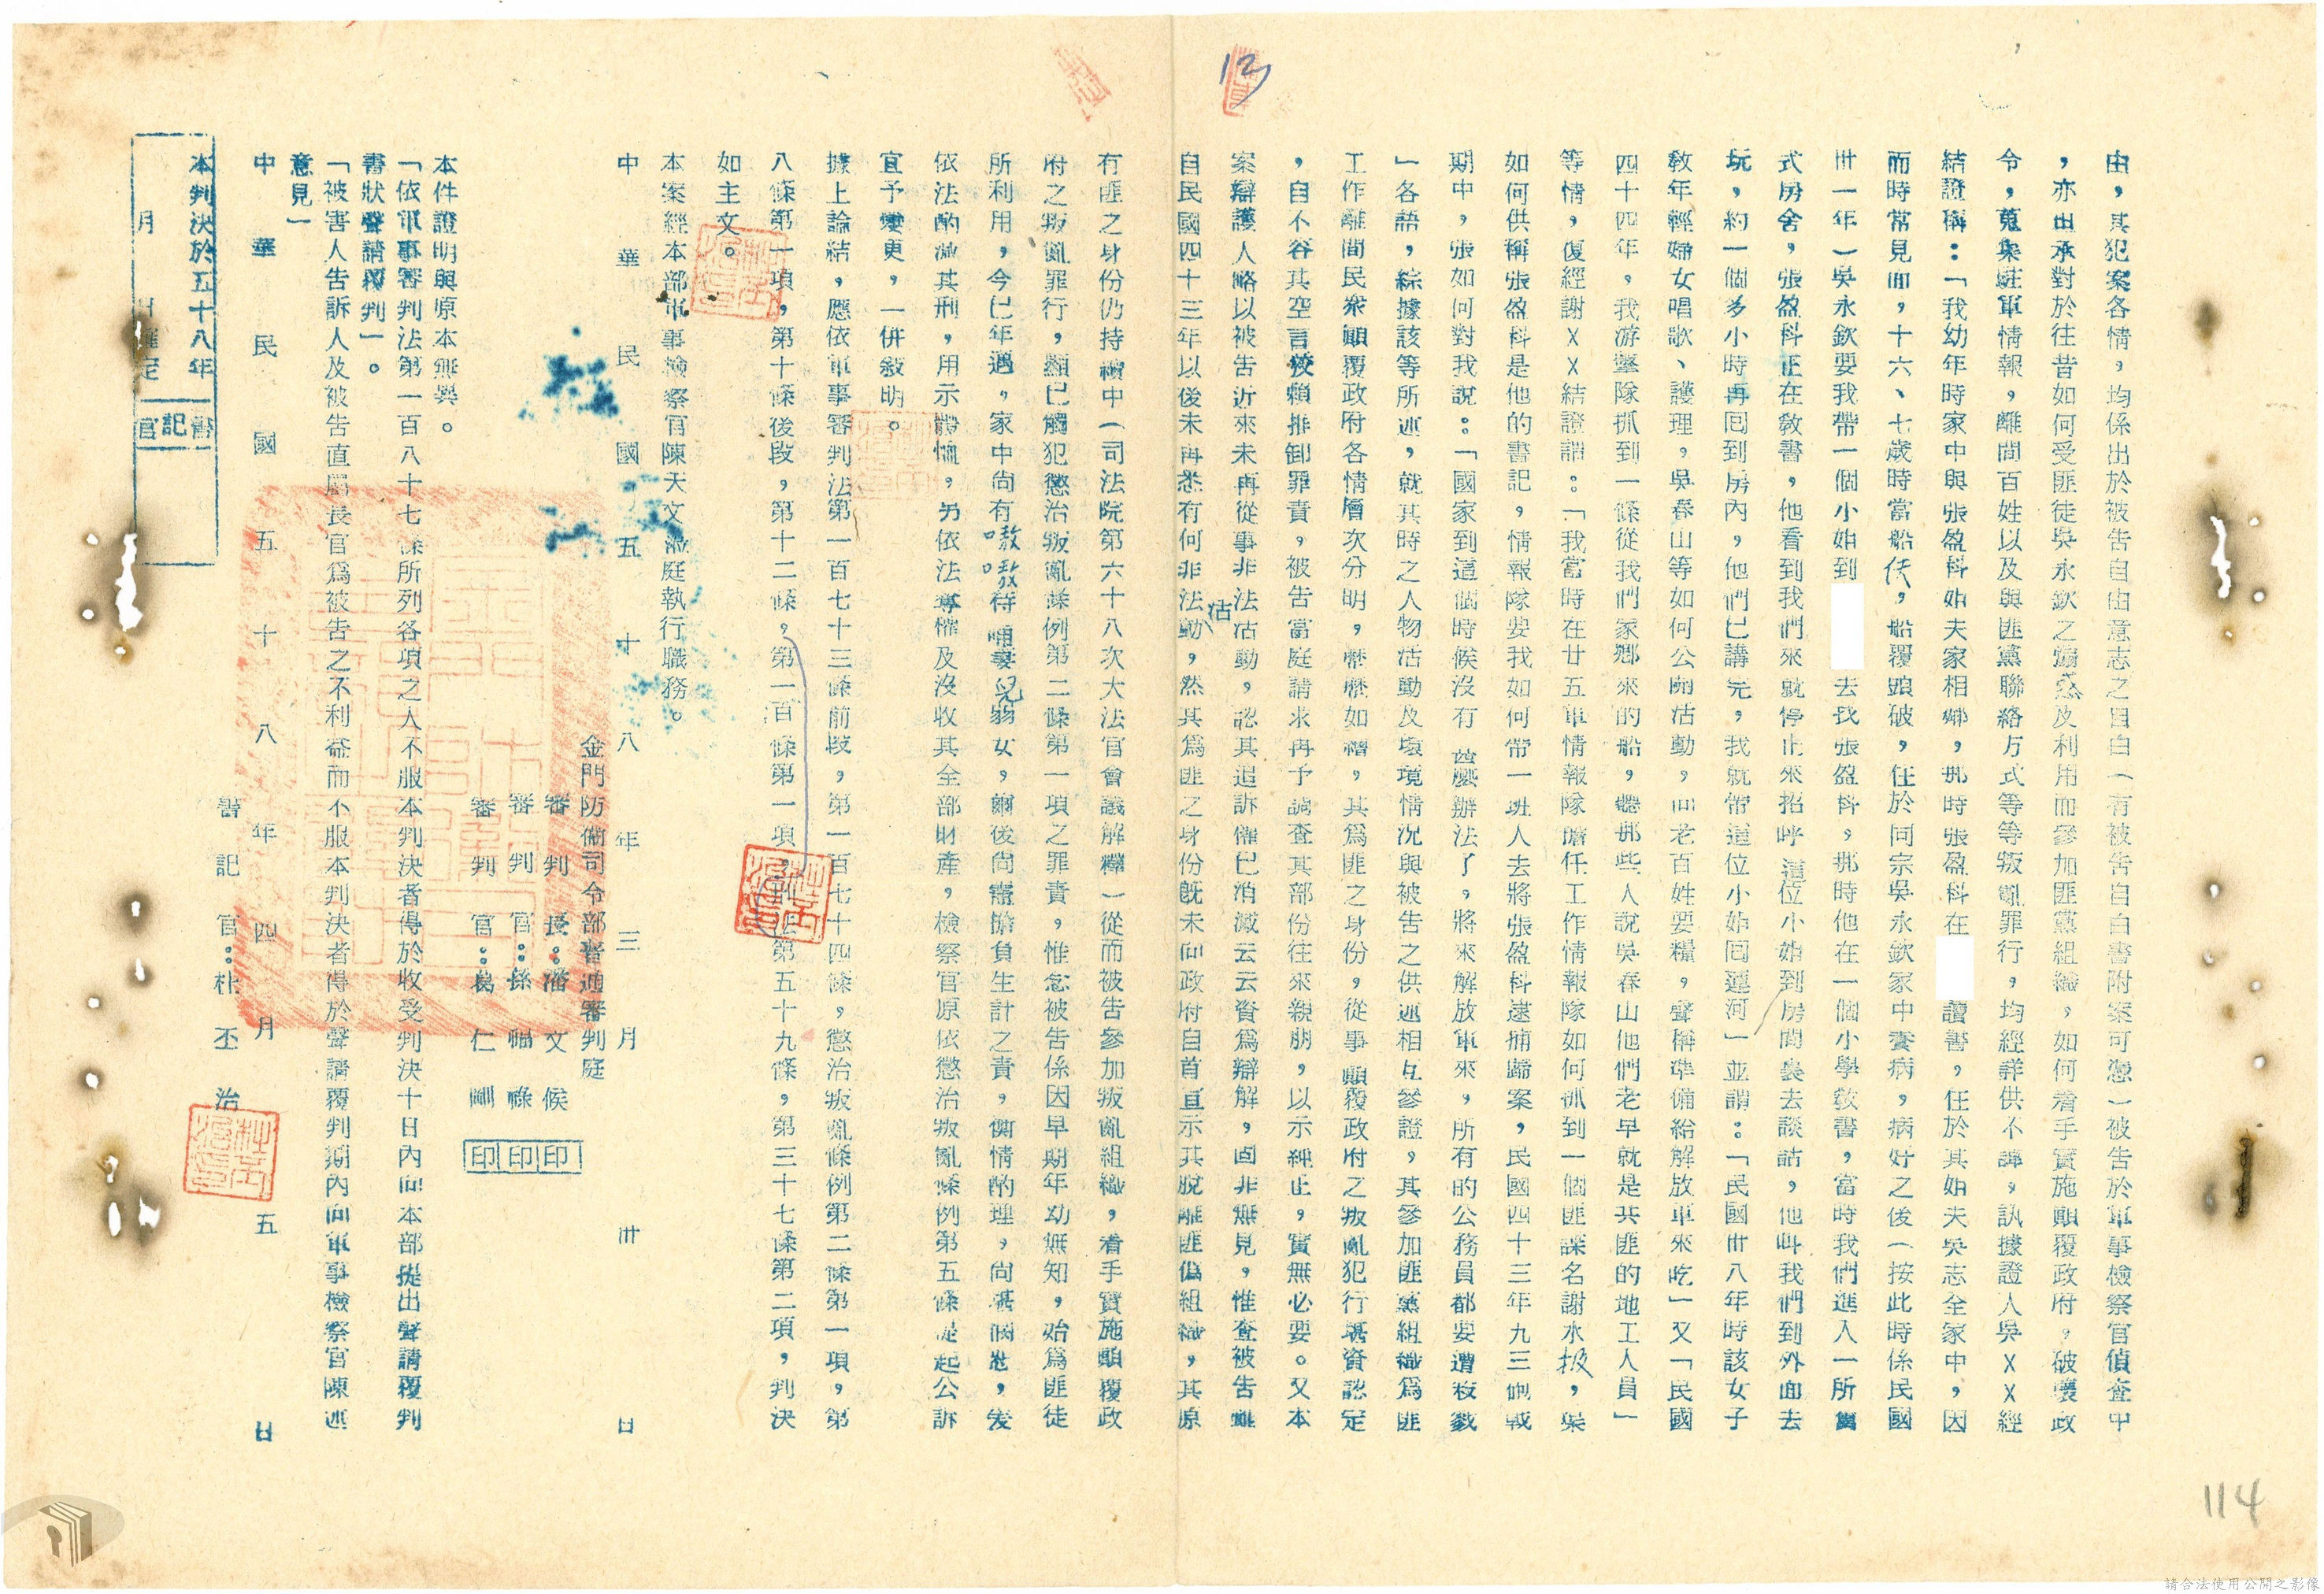 13
由，其犯案各情，均係出於被告自由意志之自白（有被告自白書附案可憑）被告於軍事檢察官偵查中
，亦由承對於往昔如何受匪徒吳永欽之煽惑及利用而參加匪黨組織，如何着手實施顛覆政府，破壞政
令，蒐集駐軍情報，離間百姓以及與匪黨聯絡方式等等叛亂罪行，均經詳供不諱，訊據證人吳XX經
結證稱：「我幼年時家中與張盈科姊夫家相鄰，那時張盈科在 讀書，住於其姊夫吳志全家中，因
而時常見面，十六、七歲時當船伕，船覆頭破，住於同宗吳永欽家中養病，病好之後（按此時係民國
卅一年）吳永欽要我帶一個小姐到 去找張盈科，那時他在一個小學教書，當時我們進入一所舊
式房舍，張盈科正在教書，他看到我們來就停止來招呼這位小姐到房間裏去談話，他叫我們到外面去
玩，約一個多小時再回到房內，他們已講完，我就帶這位小姐回蓮河」並謂：「民國卅八年時該女子
教年輕婦女唱歌、護理，吳春山等如何公開活動，向老百姓要糧，聲稱準備給解放軍來吃」又「民國
四十四年，我游擊隊抓到一條從我們家鄉來的船，聽那些人說吳春山他們老早就是共匪的地工人員」
等情，復經謝XX結證謂：「我當時在廿五軍情報隊擔任工作情報隊如何抓到一個匪諜名謝水扱，渠
如何供稱張盈科是他的書記，情報隊要我如何帶一班人去將張盈科逮捕歸案，民國四十三年九三砲戰
期中，張如何對我說：「國家到這個時候沒有甚麼辦法了，將來解放軍來，所有的公務員都要遭被戮
」各語，綜據該等所述，就其時之人物活動及環境情況與被告之供述相互參證，其參加匪黨組織為匪
工作離間民衆顛覆政府各情層次分明，歷歷如繪，其為匪之身份，從事顛覆政府之叛亂犯行堪資認定
，自不容其空言狡賴推卸罪責，被告當庭請求再予調查其部份往來親朋，以示糾正，實無必要。又本
案辯護人略以被告近來未再從事非法活動，認其追訴權已消滅云云資為辯解，固非無見，惟查被告雖
自民國四十三年以後未再悉有何非法活動，然其為匪之身份既未向政府自首直示其脫離匪偽組織，其原
有匪之身份仍持續中（司法院第六十八次大法官會議解釋）從而被告參加叛亂組織，着手實施顛覆政
府之叛亂罪行，顯已觸犯懲治叛亂條例第二條第一項之罪責，惟念被告係因早期年幼無知，始為匪徒
所利用，今已年邁，家中尚有嗷嗷待哺妻兒弱女，爾後尚需擔負生計之責，衡情酌理，尚堪憫恕，爰
依法酌減其刑，用示體恤，另依法奪權及沒收其全部財產，檢察官原依懲治叛亂條例第五條提起公訴
宜予變更，一併敍明。
據上論結，應依軍事審判法第一百七十三條前段，第一百七十四條，懲治叛亂條例第二條第一項，第
八條第一項，第十條後段，第十二條，第一百條第一項，刑法第五十九條，第三十七條第二項，判決
如主文。
本案經本部軍事檢察官陳天文蒞庭執行職務。
中華民國五十八年三月卅日
金門防衛司令部普通審判庭
審判長：潘文候 印
審判官：孫福祿 印
審判官：葛仁剛 印
本件證明與原本無異。
「依軍事審判法第一百八十七條所列各項之人不服本判決者得於收受判決十日內向本部提出聲請覆判
書狀聲請覆判」。
「被害人告訴人及被告直屬長官為被告之不利益而不服本判決者得於聲請覆判期內向軍事檢察官陳述
意見」
中華民國五十八年四月五日
書記官：杜丕治
本判決於五十八年
月 日確定
書記官
114
請合法使用公開之影像